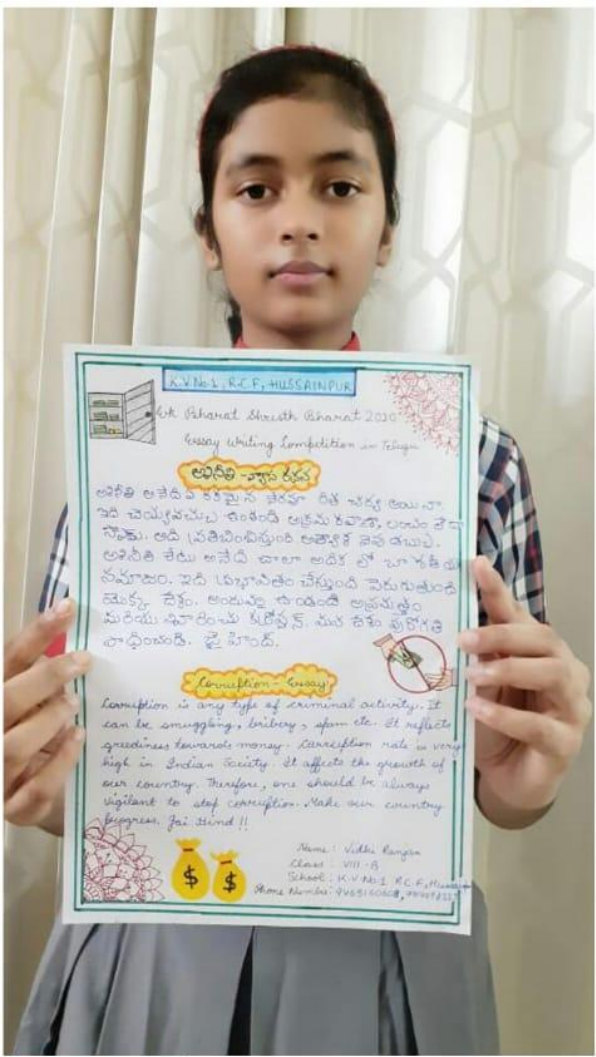 K.V No 1, R.C.F, HUSSAINPUR
Ek Bharat Shresth Bharat 2020
Essay Writing Competition in Telugu
అవినీతి - వ్యాస రచన
అవినీతి అనేది ఏ రకమైన నేరపూరిత చర్య అయినా.
ఇది చెయ్యవచ్చు ఉంటుంది అక్రమ రవాణా, లంచం
అది ప్రతిబింబిస్తుంది
అవినీతి రేటు అనేది చాలా అధిక లో
సమాజం. ఇది ప్రభావితం చేస్తుంది పెరుగుతుంది
యొక్క దేశం. అందువల్ల ఉండండి అప్రమత్తం
మరియు కరోప్షన్. మన దేశం పురోగతి
సాధించండి. జై హింద్.
Corruption - Essay
Corruption is any type of criminal activity. It
can be smuggling, bribery, spam etc. It reflects
greediness towards money. Corruption rate is very
high in Indian Society. It affects the growth of
our country. Therefore, one should be always
vigilant to stop corruption. Make our country
progress. Jai Hind !!
Name : Vidhi Ranjan
Class : VIII - B
School : K.V No.1 R.C.F, Hussainpur
Phone Number :